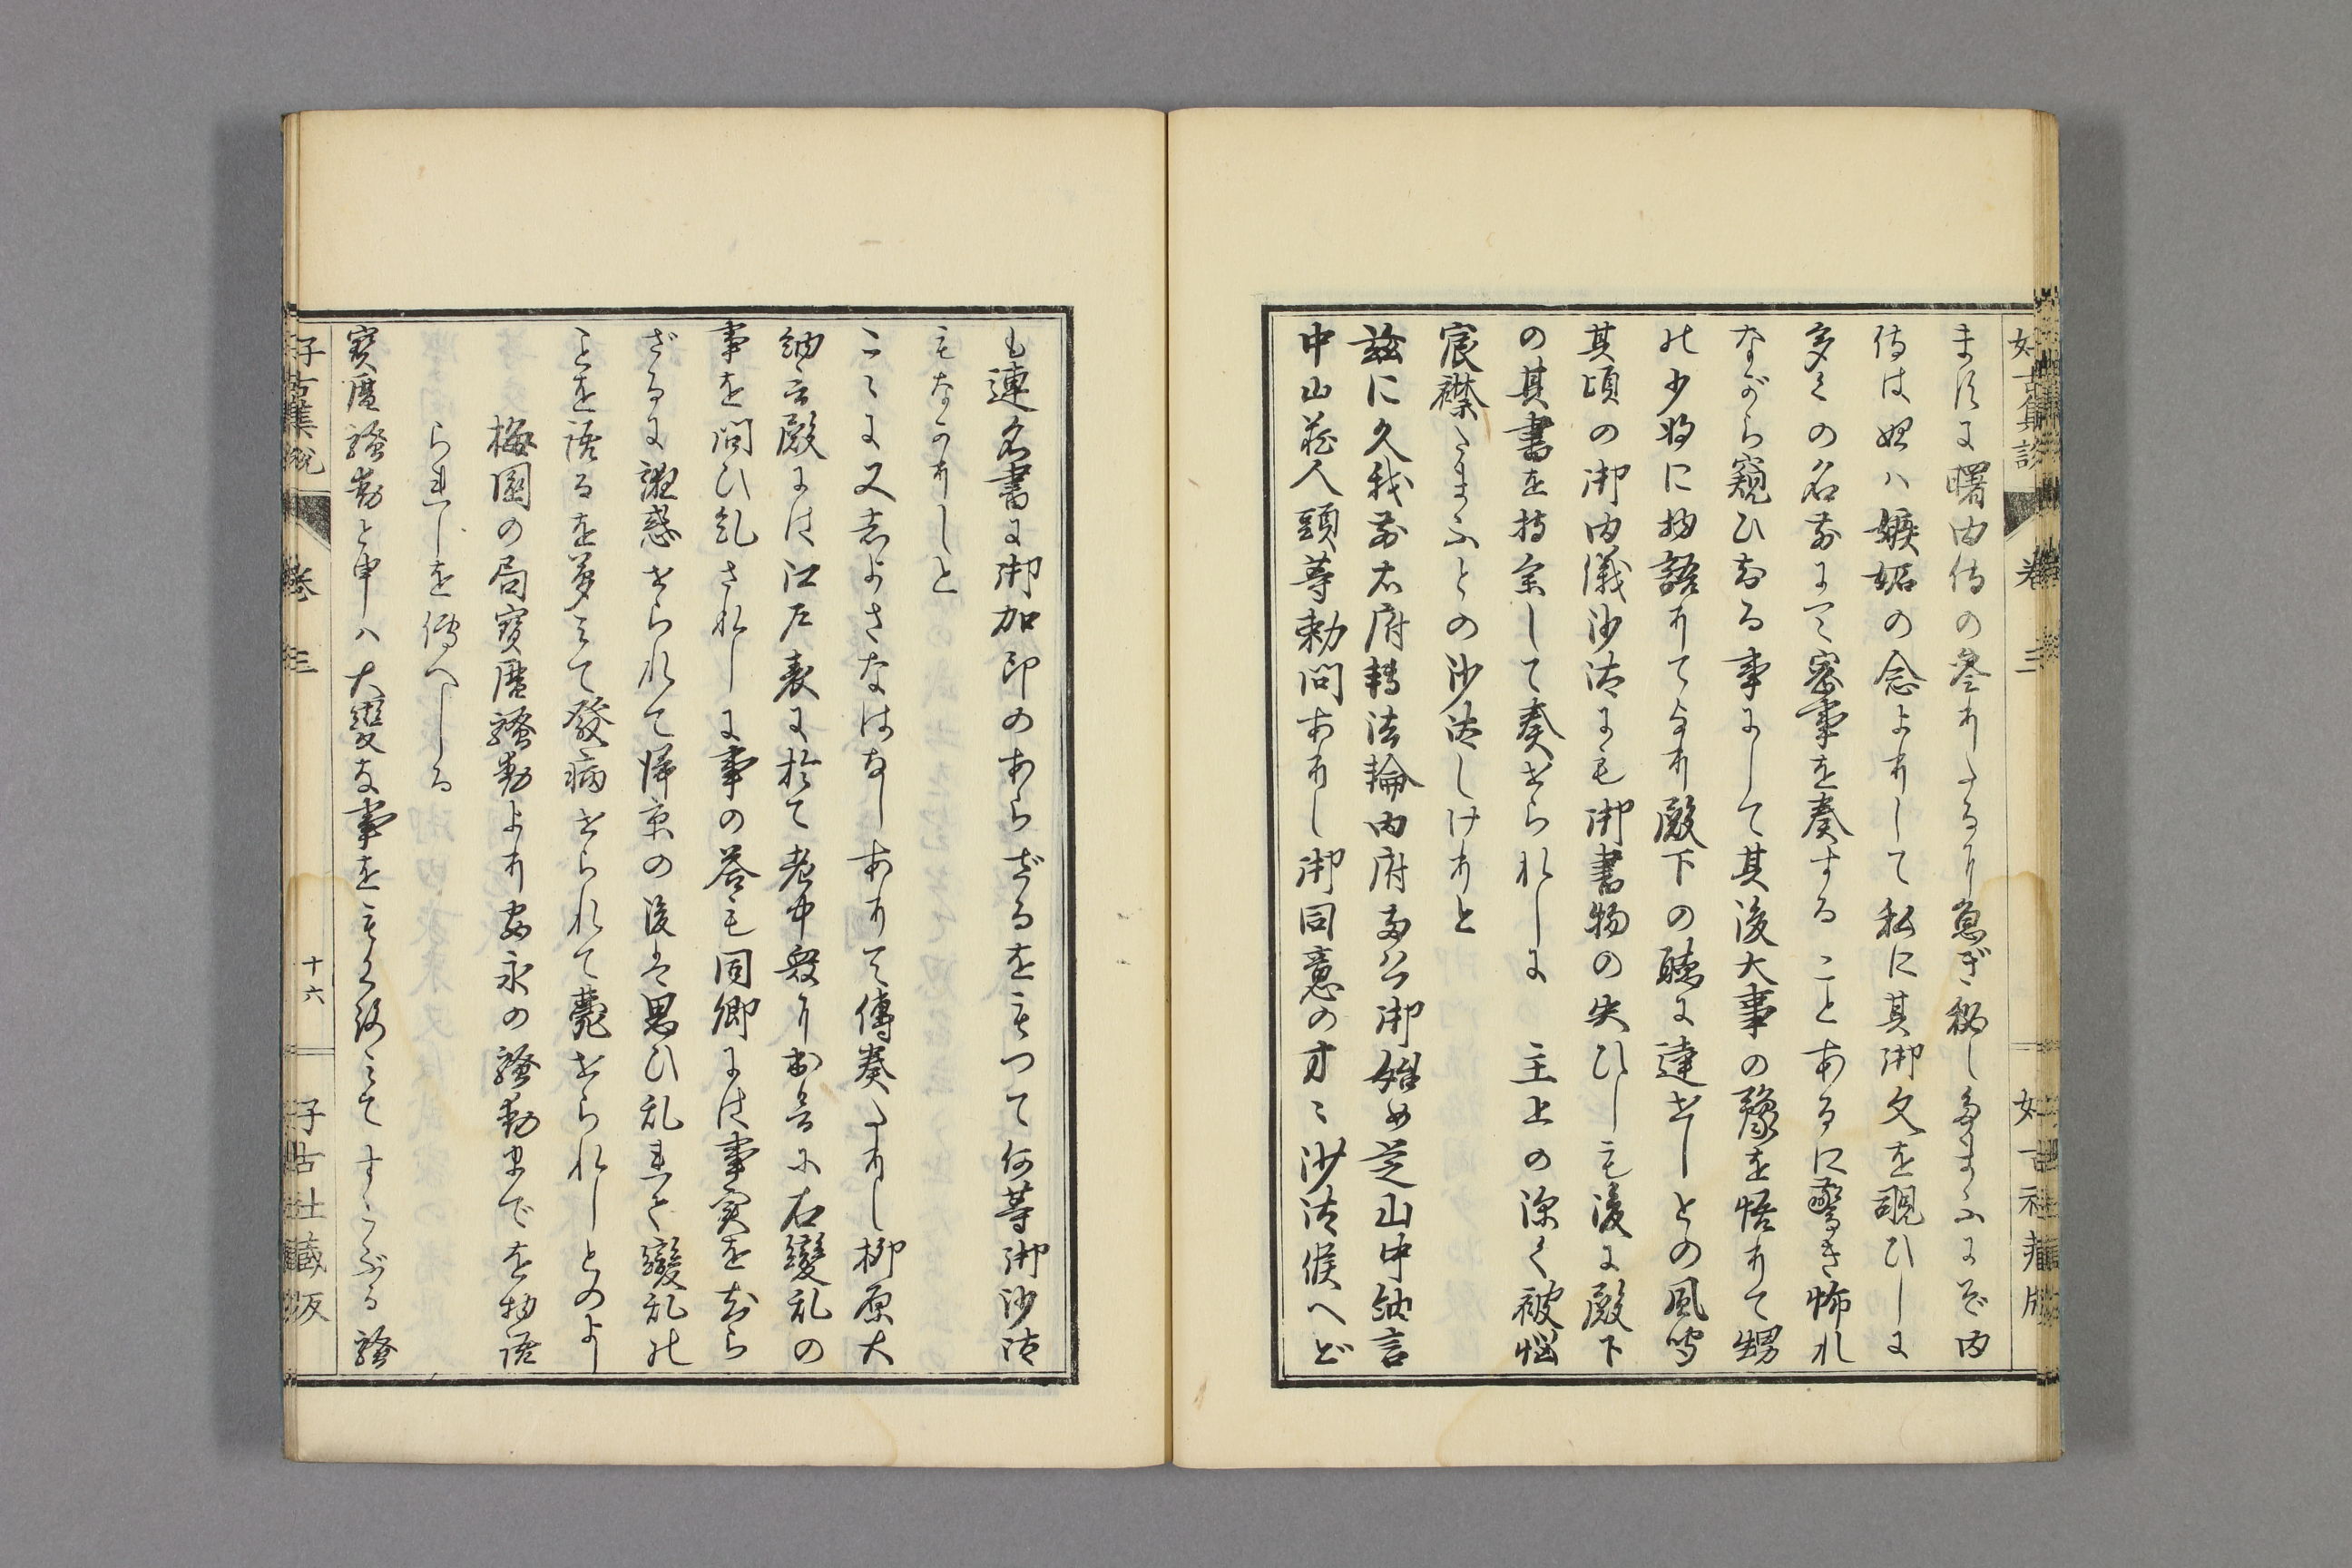 好古集説 卷三 好古社蔵版
まに曙内侍の參りたるに急ぎ秘したまふにぞ内
侍は始ハ嫉妬の念よりして私に其御文を覗ひしに
多くの名前にて密事を奏することあるに驚き怖れ
ながら窺ひある事にして其後大事の豫を悟りて甥
の少将に物語りてより殿下の聴に達せしとの風聞
其頃の御内儀沙汰にも御書物の失ひしも後に殿下
の其書を持参して奏せられしに 主上の深く被悩
宸襟たまふとの沙汰しけりと
茲に久我前右府轉法輪内府両公御始め芝山中納言
中山蔵人頭等勅問ありし御同意の方々沙汰候へど
も連名書に御加印のあらざるをもつて何等御沙汰
もなかりしと
こゝに又志よさなはなしありて傳奏たりし柳原大
納言殿には江戸表に於て老中衆に出会に右變乱の
事を問ひ糺されしに事の答も同卿には事実を知ら
ざるに誑惑せられて帰京の後は思ひ乱れて變乱の
ことを語るを夢みて發病せられて薨せられしとのよし
梅園の局寳暦騒動より安永の騒動までを物語
られしを傳へしる
寳暦騒動と申ハ大變な事をもくろみてすこぶる騒
好古集説 卷三 十六 好古社蔵版